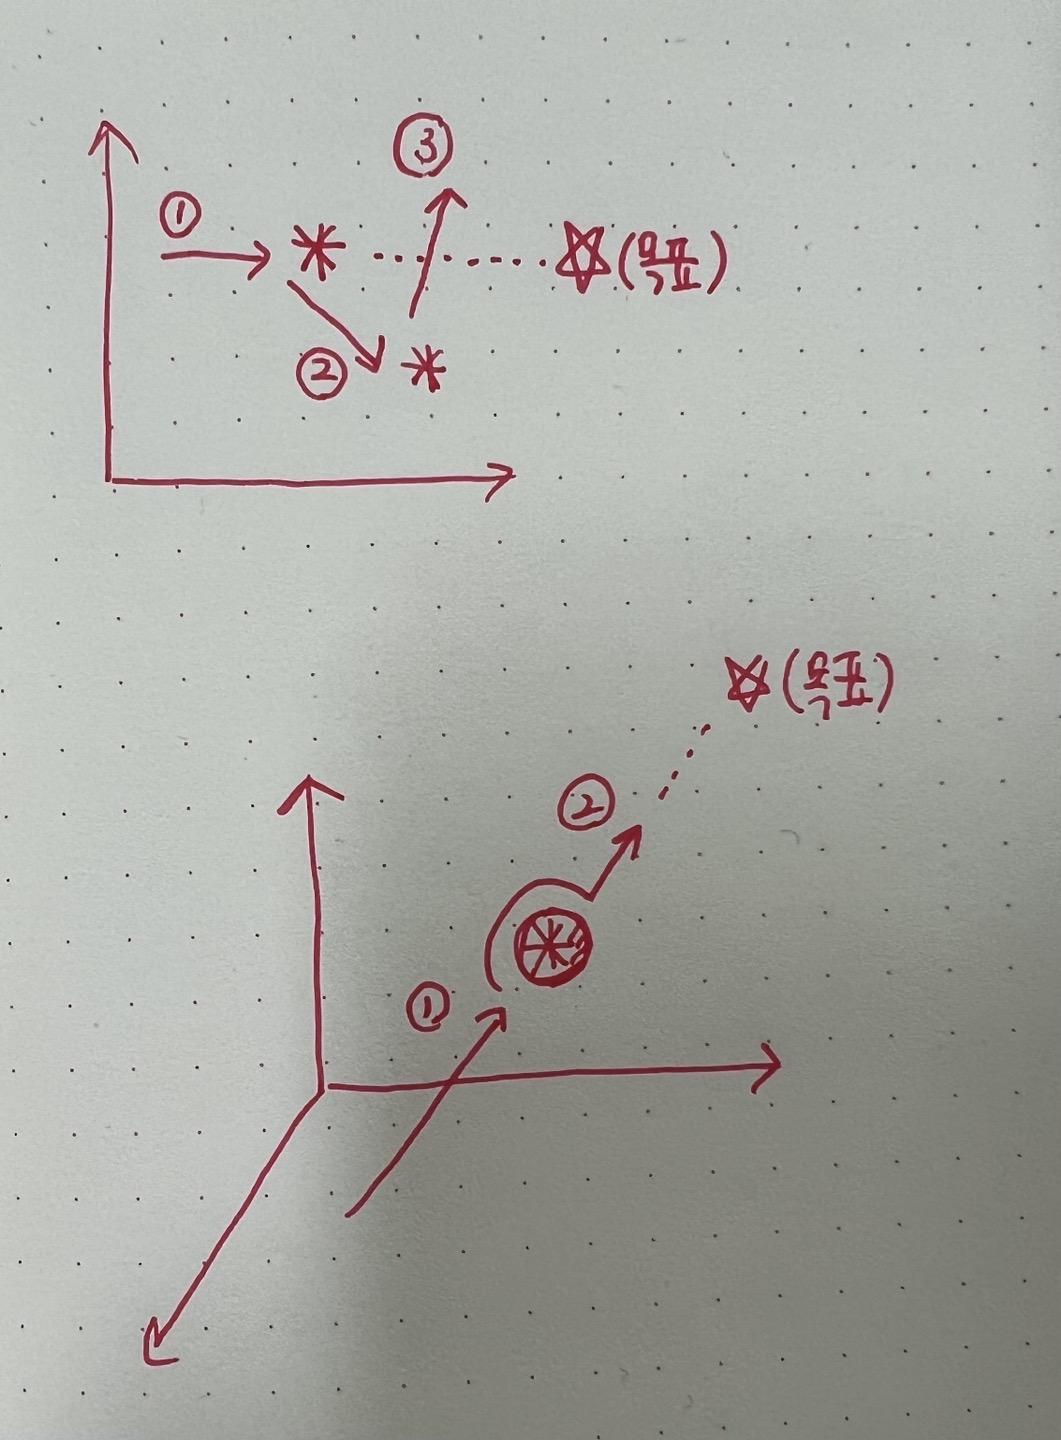 ③
①
☆(목표)
②
☆(목표)
②
①